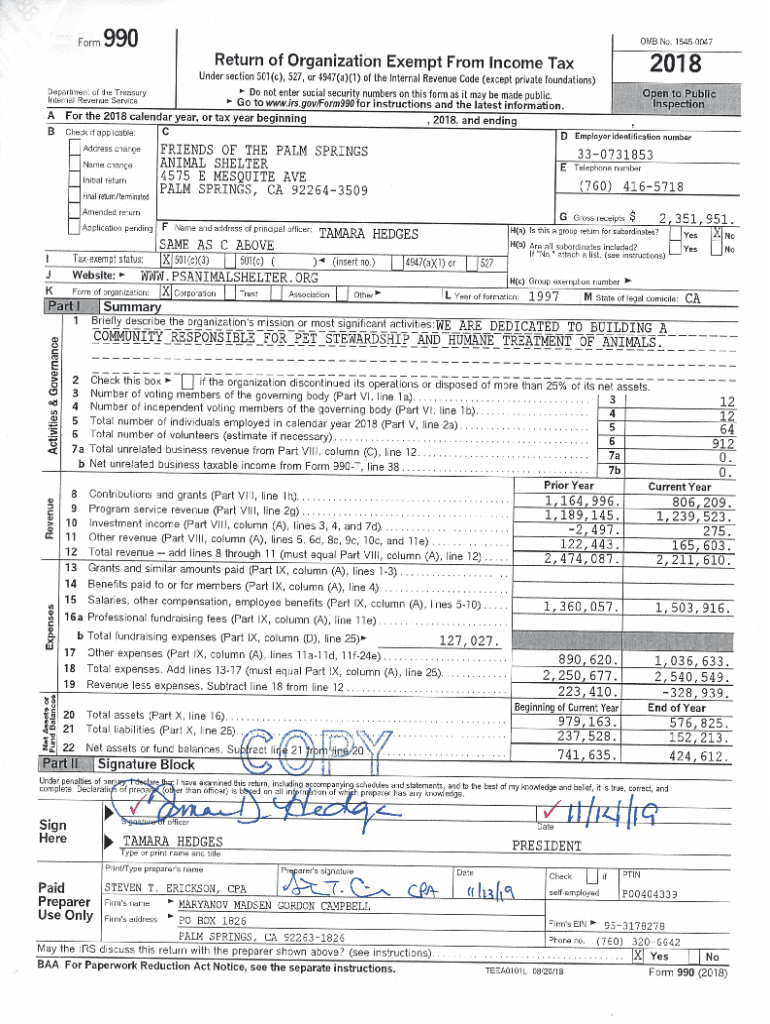 Form 990
OMB No. 1545-0047
Return of Organization Exempt From Income Tax
2018
Under section 501(c), 527, or 4947(a)(1) of the Internal Revenue Code (except private foundations)
Department of the Treasury
Internal Revenue Service
► Do not enter social security numbers on this form as it may be made public.
► Go to www.irs.gov/Form990 for instructions and the latest information.
Open to Public
Inspection
A For the 2018 calendar year, or tax year beginning , 2018, and ending ,
B Check if applicable:
Address change
Name change
Initial return
Final return/terminated
Amended return
Application pending
C
FRIENDS OF THE PALM SPRINGS
ANIMAL SHELTER
4575 E MESQUITE AVE
PALM SPRINGS, CA 92264-3509
D Employer identification number
33-0731853
E Telephone number
(760) 416-5718
G Gross receipts $ 2,351,951.
F Name and address of principal officer: TAMARA HEDGES
SAME AS C ABOVE
H(a) Is this a group return for subordinates? Yes X No
H(b) Are all subordinates included? Yes No
If "No," attach a list. (see instructions)
I Tax-exempt status: X 501(c)(3) 501(c) ( )◄ (insert no.) 4947(a)(1) or 527
J Website: ► WWW.PSANIMALSHELTER.ORG
H(c) Group exemption number ►
K Form of organization: X Corporation Trust Association Other ► L Year of formation: 1997 M State of legal domicile: CA
Part I Summary
1 Briefly describe the organization's mission or most significant activities: WE ARE DEDICATED TO BUILDING A
COMMUNITY RESPONSIBLE FOR PET STEWARDSHIP AND HUMANE TREATMENT OF ANIMALS.
Activities & Governance
2 Check this box ► if the organization discontinued its operations or disposed of more than 25% of its net assets.
3 Number of voting members of the governing body (Part VI, line 1a) 3 12
4 Number of independent voting members of the governing body (Part VI, line 1b) 4 12
5 Total number of individuals employed in calendar year 2018 (Part V, line 2a) 5 64
6 Total number of volunteers (estimate if necessary) 6 912
7a Total unrelated business revenue from Part VIII, column (C), line 12 7a 0.
b Net unrelated business taxable income from Form 990-T, line 38 7b 0.
Prior Year Current Year
Revenue
8 Contributions and grants (Part VIII, line 1h) 1,164,996. 806,209.
9 Program service revenue (Part VIII, line 2g) 1,189,145. 1,239,523.
10 Investment income (Part VIII, column (A), lines 3, 4, and 7d) -2,497. 275.
11 Other revenue (Part VIII, column (A), lines 5, 6d, 8c, 9c, 10c, and 11e) 122,443. 165,603.
12 Total revenue – add lines 8 through 11 (must equal Part VIII, column (A), line 12) 2,474,087. 2,211,610.
Expenses
13 Grants and similar amounts paid (Part IX, column (A), lines 1-3)
14 Benefits paid to or for members (Part IX, column (A), line 4)
15 Salaries, other compensation, employee benefits (Part IX, column (A), lines 5-10) 1,360,057. 1,503,916.
16a Professional fundraising fees (Part IX, column (A), line 11e)
b Total fundraising expenses (Part IX, column (D), line 25) ► 127,027.
17 Other expenses (Part IX, column (A), lines 11a-11d, 11f-24e) 890,620. 1,036,633.
18 Total expenses. Add lines 13-17 (must equal Part IX, column (A), line 25) 2,250,677. 2,540,549.
19 Revenue less expenses. Subtract line 18 from line 12 223,410. -328,939.
Net Assets or Fund Balances
Beginning of Current Year End of Year
20 Total assets (Part X, line 16) 979,163. 576,825.
21 Total liabilities (Part X, line 26) 237,528. 152,213.
22 Net assets or fund balances. Subtract line 21 from line 20 741,635. 424,612.
COPY
Part II Signature Block
Under penalties of perjury, I declare that I have examined this return, including accompanying schedules and statements, and to the best of my knowledge and belief, it is true, correct, and
complete. Declaration of preparer (other than officer) is based on all information of which preparer has any knowledge.
Sign
Here
Tamara D. Hedges
11/14/19
Signature of officer
Date
TAMARA HEDGES
PRESIDENT
Type or print name and title
Paid
Preparer
Use Only
Print/Type preparer's name
Preparer's signature
Date
Check if
self-employed
PTIN
STEVEN T. ERICKSON, CPA
CPA
11/13/19
P00404339
Firm's name ► MARYANOV MADSEN GORDON CAMPBELL
Firm's address ► PO BOX 1826
Firm's EIN ► 95-3178278
PALM SPRINGS, CA 92263-1826
Phone no. (760) 320-6642
May the IRS discuss this return with the preparer shown above? (see instructions) X Yes No
BAA For Paperwork Reduction Act Notice, see the separate instructions. TEEA0101L 08/20/18 Form 990 (2018)